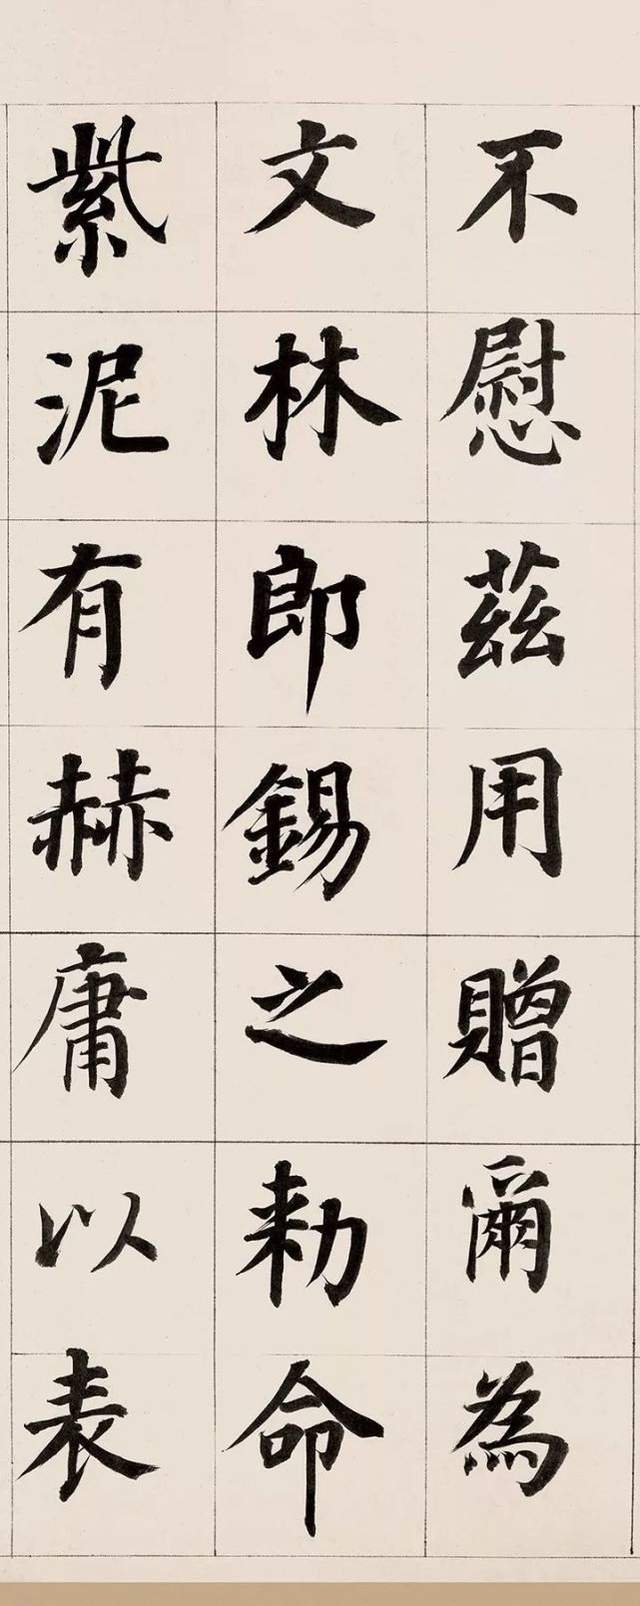 不慰茲用贈爾為
文林郎錫之勅命
紫泥有赫庸以表